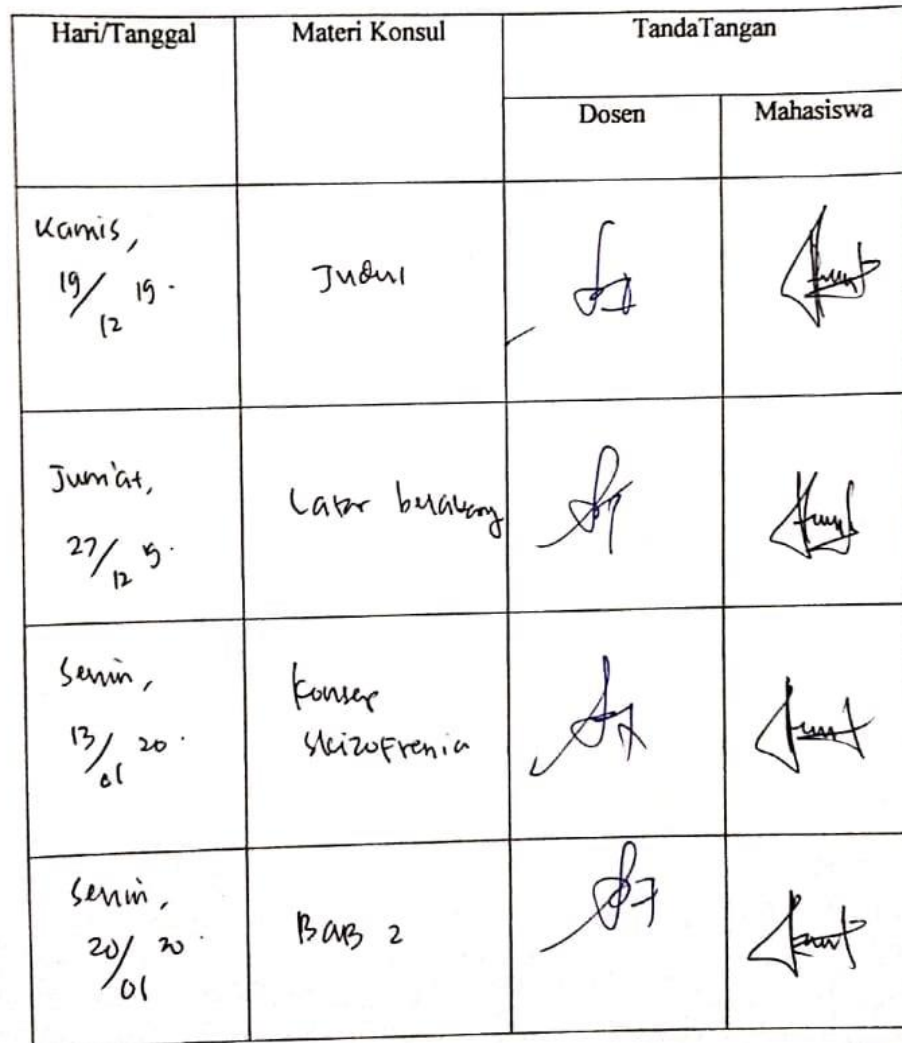 Hari/Tanggal
Materi Konsul
TandaTangan
Dosen
Mahasiswa
Kamis,
19/12 19.
Judul
Jum'at,
27/12 19.
Latar belakang
Senin,
13/01 20.
Konsep
Skizofrenia
Senin,
20/01 20.
BAB 2